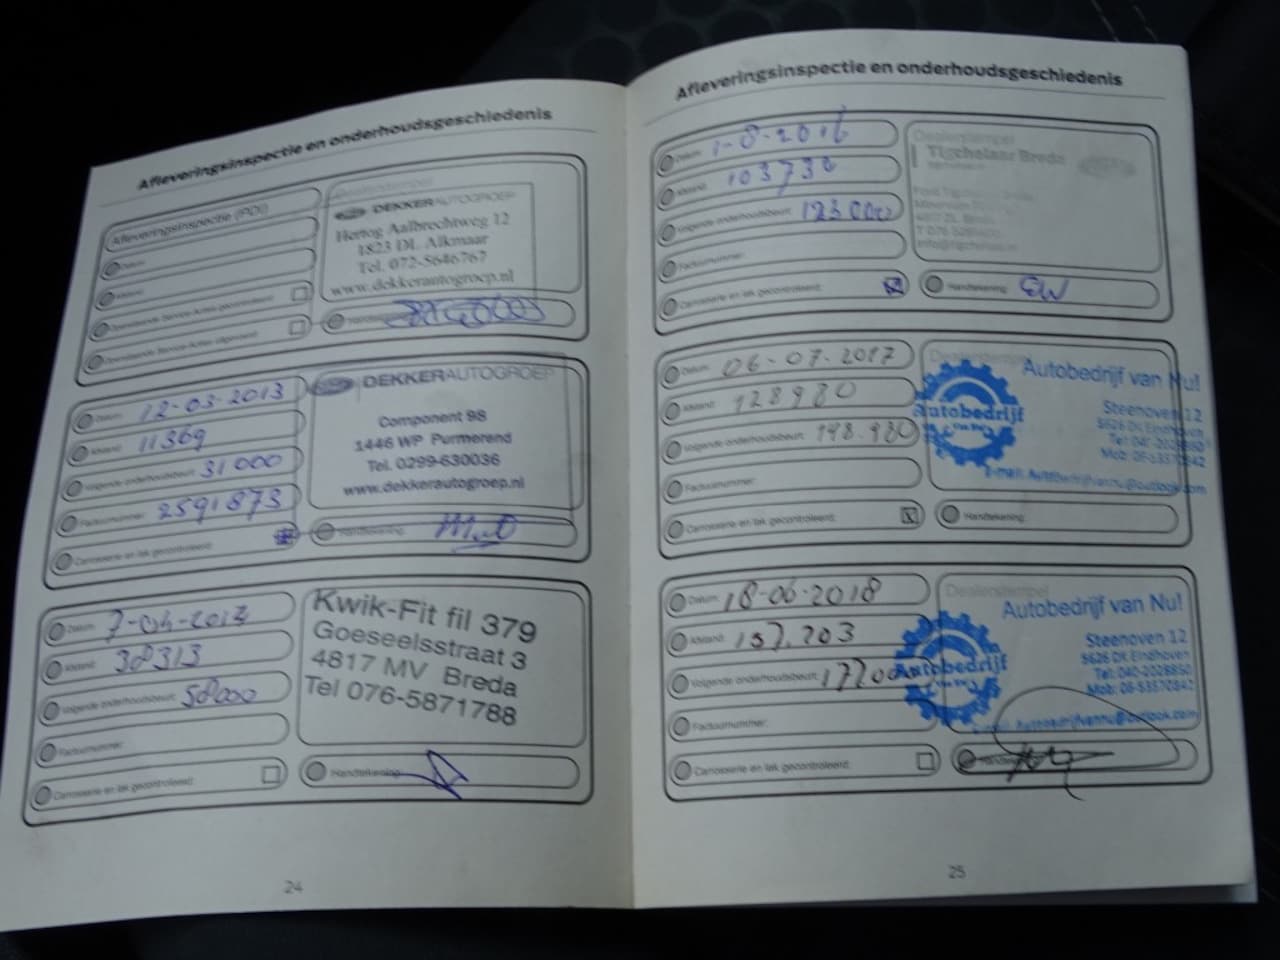 Afleveringsinspectie en onderhoudsgeschiedenis
Afleveringsinspectie (PDI)
Datum:
Afstand:
Openstaande Service Acties gecontroleerd:
Openstaande Service Acties uitgevoerd:
DEKKERAUTOGROEP
Hertog Aalbrechtweg 12
1823 DL Alkmaar
Tel. 072-5646767
www.dekkerautogroep.nl
Handtekening:
Datum: 12-03-2013
Afstand: 11369
Volgende onderhoudsbeurt: 31000
Factuurnummer: 2591873
Carrosserie en lak gecontroleerd:
DEKKERAUTOGROEP
Component 98
1446 WP Purmerend
Tel. 0299-630036
www.dekkerautogroep.nl
Handtekening:
Datum: 7-04-2014
Afstand: 38313
Volgende onderhoudsbeurt: 58000
Factuurnummer:
Carrosserie en lak gecontroleerd:
Kwik-Fit fil 379
Goeseelsstraat 3
4817 MV Breda
Tel 076-5871788
Handtekening:
24
Afleveringsinspectie en onderhoudsgeschiedenis
Datum: 1-8-2016
Afstand: 103730
Volgende onderhoudsbeurt: 123000
Factuurnummer:
Carrosserie en lak gecontroleerd:
Dealerstempel
Tigchelaar Breda
Handtekening:
Datum: 06-07-2017
Afstand: 128980
Volgende onderhoudsbeurt: 148.980
Factuurnummer:
Carrosserie en lak gecontroleerd: X
Autobedrijf van Nu!
Autobedrijf
Van Nu!
Steenoven 12
5626 DK Eindhoven
Tel: 040-2028850
Mob: 06-53570842
E-mail: Autobedrijfvannu@outlook.com
Handtekening:
Datum: 18-06-2018
Afstand: 157.203
Volgende onderhoudsbeurt:
Factuurnummer:
Carrosserie en lak gecontroleerd:
Dealerstempel
Autobedrijf van Nu!
Autobedrijf
Van Nu!
Steenoven 12
5626 DK Eindhoven
Tel: 040-2028850
Mob: 06-53570842
E-mail: Autobedrijfvannu@outlook.com
25